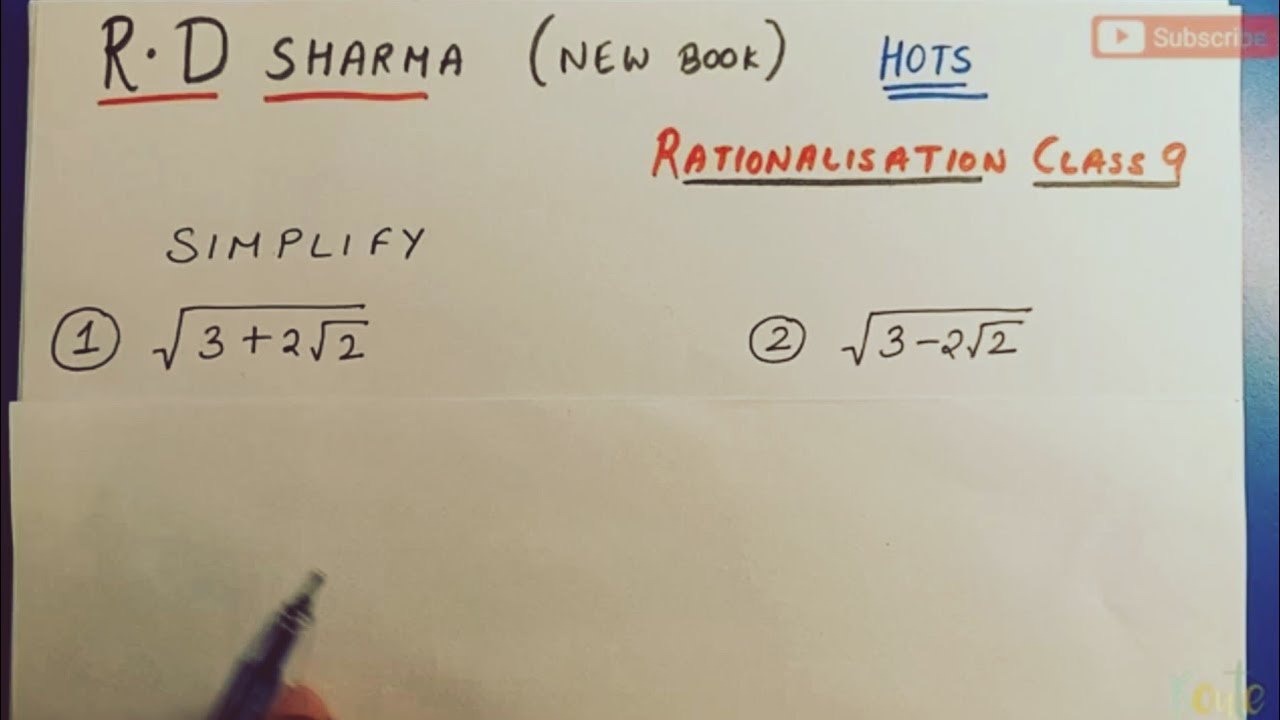 R.D SHARMA (NEW BOOK) HOTS
Subscribe
RATIONALISATION CLASS 9
SIMPLIFY
① √(3+2√2) ② √(3-2√2)